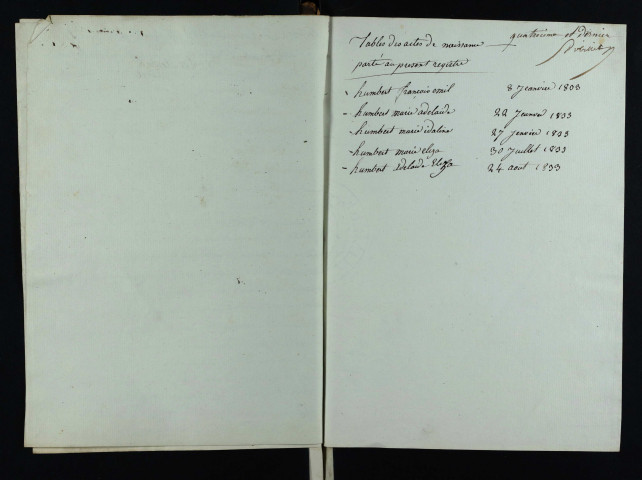 Tables des actes de naissance
quatrieme et dernier
porté au present registre
humbert françois emil 8 Jeanvier 1833
humbert marie adelaide 22 Janvier 1833
humbert marie idaline 27 Janvier 1833
humbert marie eliza 30 Juillet 1833
humbert adelaide Eliza 24 août 1833